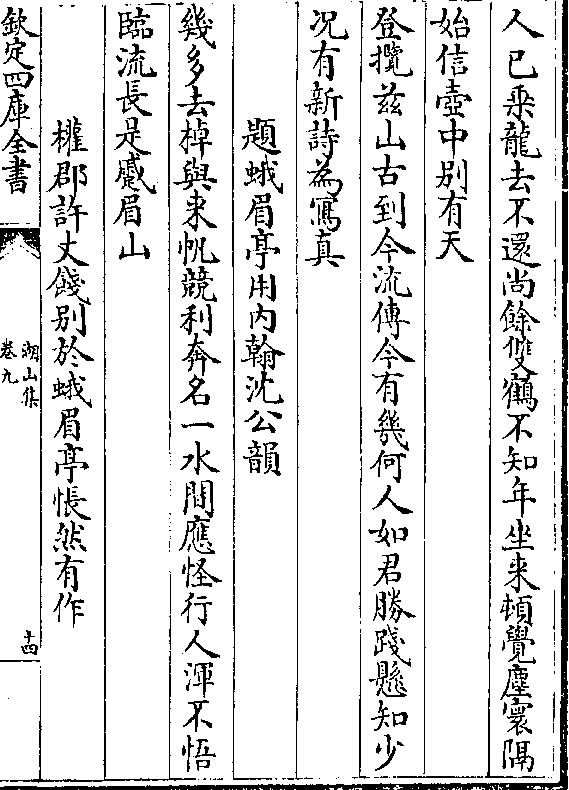 人已乗龍去不還尚餘雙鶴不知年坐来頓覺塵寰隔
始信壺中别有天
登攬兹山古到今流傳今有幾何人如君勝踐懸知少
况有新詩為寫真
題蛾眉亭用内翰沈公韻
幾多去棹與来帆競利奔名一水間應怪行人渾不悟
臨流長是蹙眉山
權郡許丈餞别於蛾眉亭悵然有作
欽定四庫全書
湖山集
卷九
十四